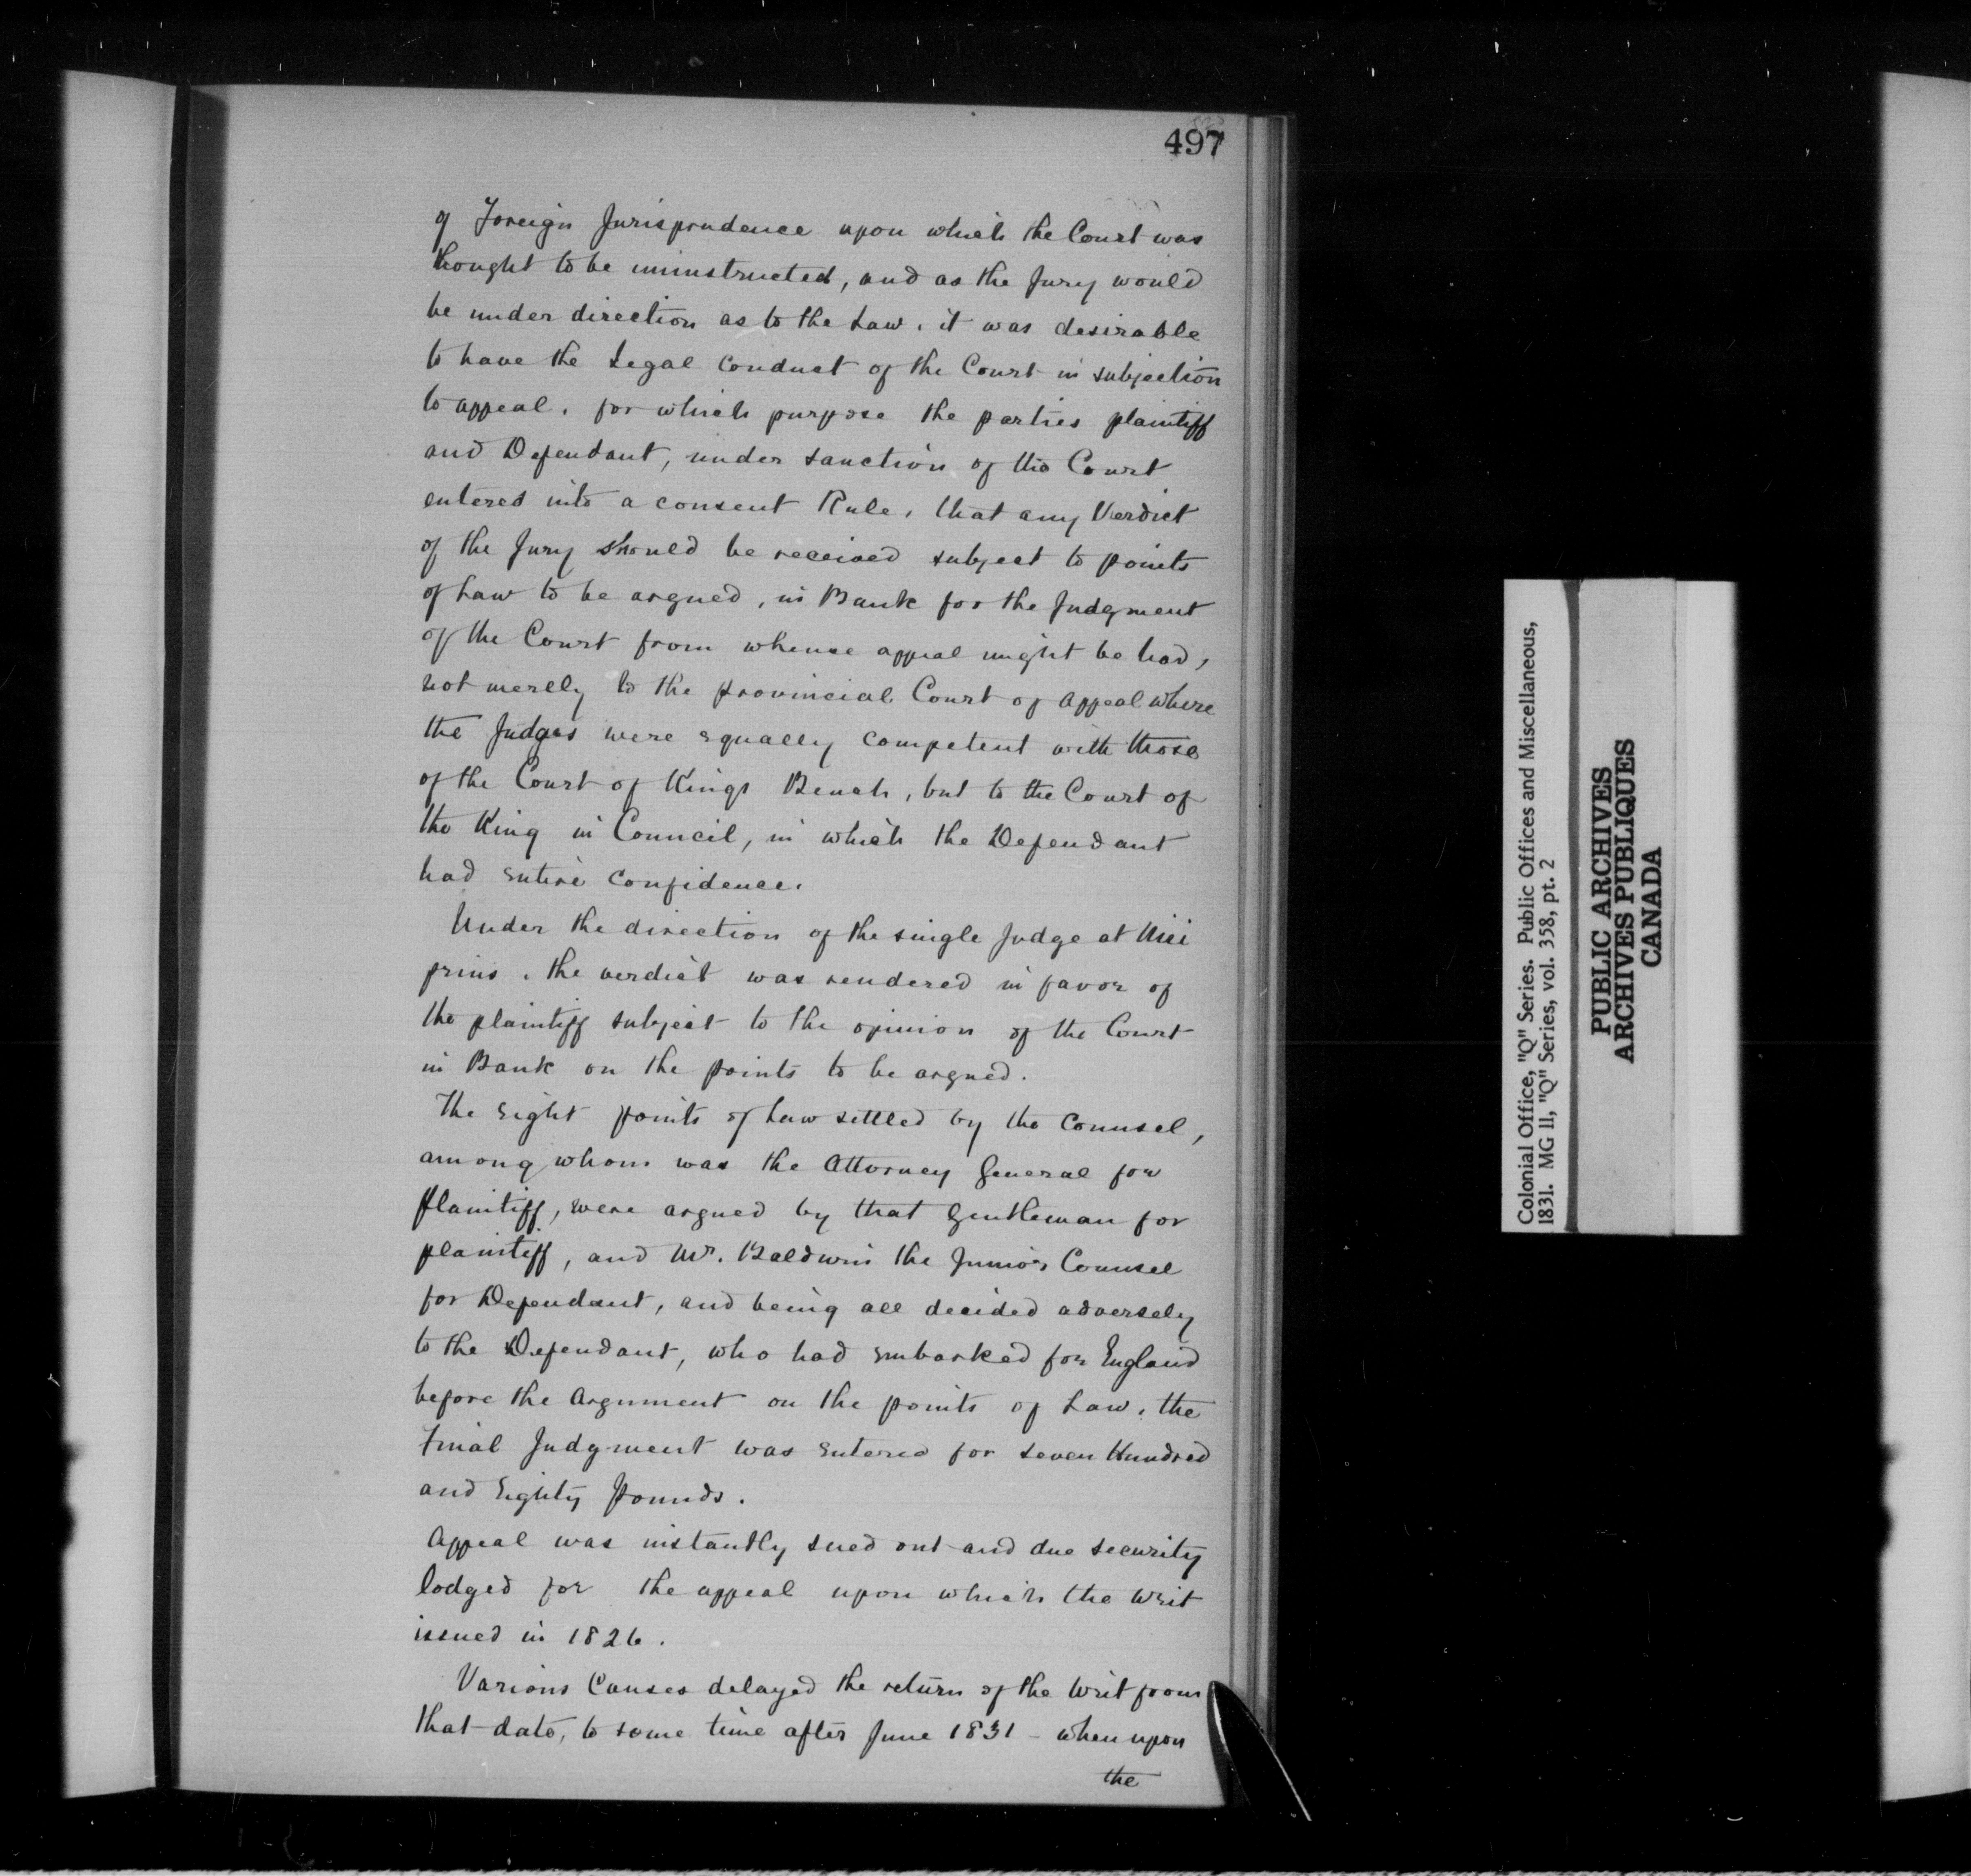 497
of Foreign Jurisprudence upon which the Court was
thought to be uninstructed, and as the Jury would
be under direction as to the Law, it was desirable
to have the Legal conduct of the Court in subjection
to appeal, for which purpose the parties plaintiff
and Defendant, under sanction of the Court
entered into a consent Rule, that any Verdict
of the Jury should be received subject to points
of Law to be argued, in Bank for the Judgment
of the Court from whence appeal might be had,
not merely to the provincial Court of appeal where
the Judges were equally competent with those
of the Court of Kings Bench, but to the Court of
the King in Council, in which the Defendant
had entire confidence.
Under the direction of the single Judge at Nisi
prius, the verdict was rendered in favor of
the plaintiff subject to the opinion of the Court
in Bank on the points to be argued.
The eight points of Law settled by the Counsel,
among whom was the Attorney General for
plaintiff, were argued by that gentleman for
plaintiff, and Mr. Baldwin the Junior Counsel
for Defendant, and being all decided adversely
to the Defendant, who had embarked for England
before the Argument on the points of Law, the
final Judgment was entered for seven Hundred
and Eighty pounds.
Appeal was instantly sued out and due security
lodged for the appeal upon which the Writ
issued in 1826.
Various Causes delayed the return of the Writ from
that date, to some time after June 1831 - when upon
the
Colonial Office, "Q" Series. Public Offices and Miscellaneous,
1831. MG 11, "Q" Series, vol. 358, pt. 2
PUBLIC ARCHIVES
ARCHIVES PUBLIQUES
CANADA